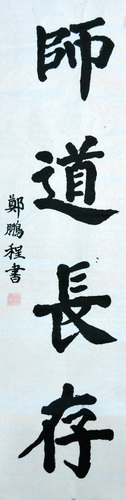 師道長存
鄭鵬程書